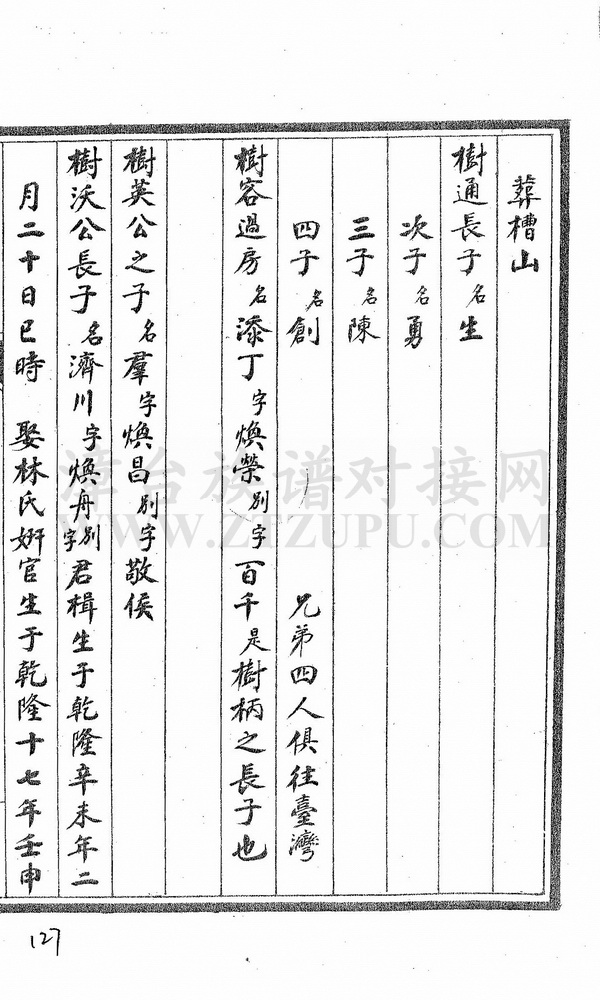 葬槽山
樹通長子名生
次子名勇
三子名陳
四子名創 兄弟四人俱往臺灣
樹容過房名添丁字煥榮別字百千是樹柄之長子也
樹英公之子名羣字煥昌別字敬侯
樹沃公長子名濟川字煥舟別字君楫生于乾隆辛未年二
月二十日巳時 娶林氏妍官生于乾隆十七年壬申
127
漳台族谱对接网
WWW.ZTZUPU.COM